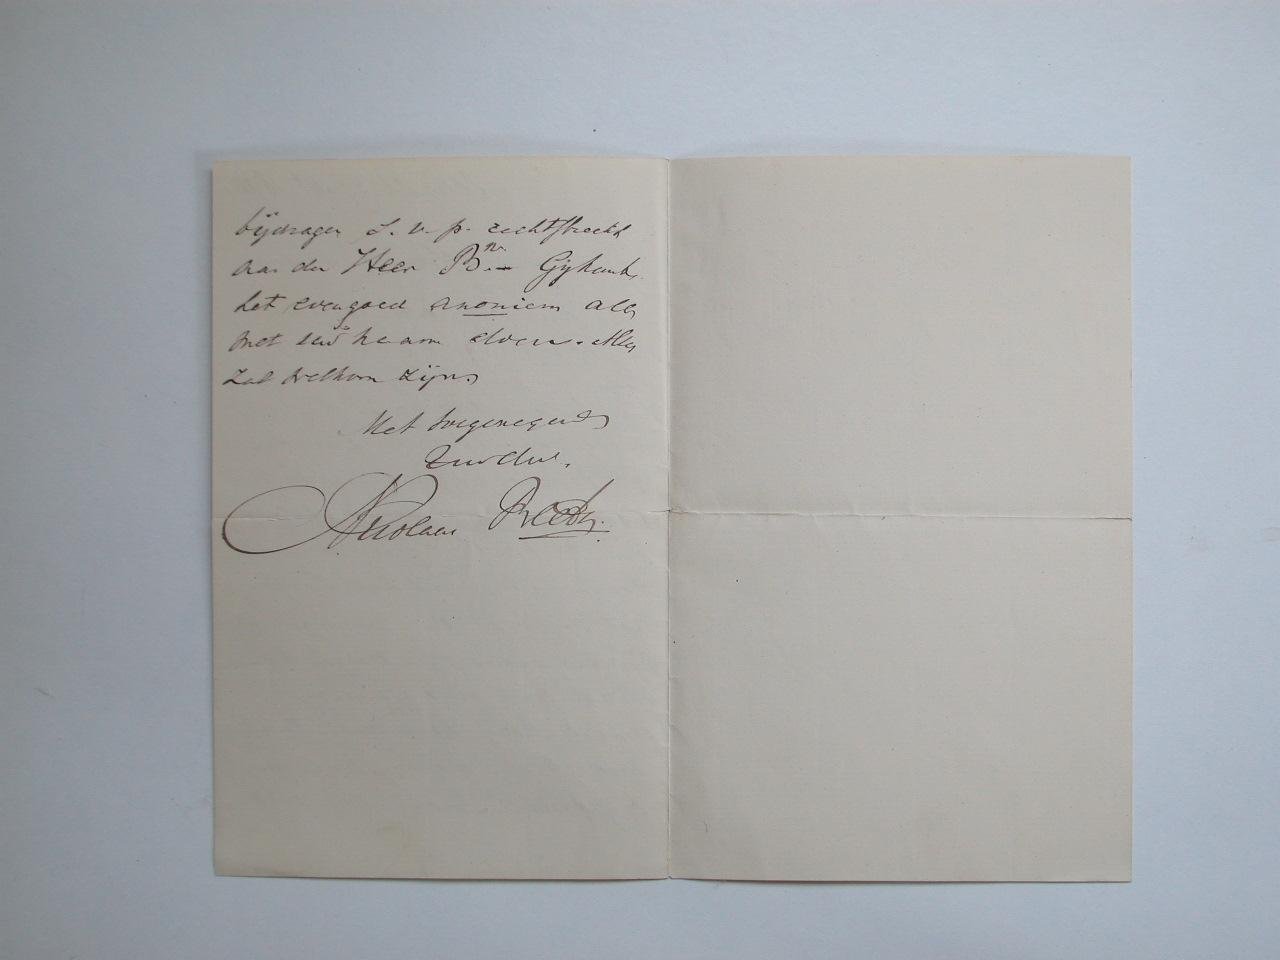 bijdragen s. v. p. rechtstreeks
aan den Heer B.
het evengoed anoniem als
met uw naam doen. Alles
zal welkom zijn
Met toegenegenh
Uw Dw.
Nicolaas Beets.